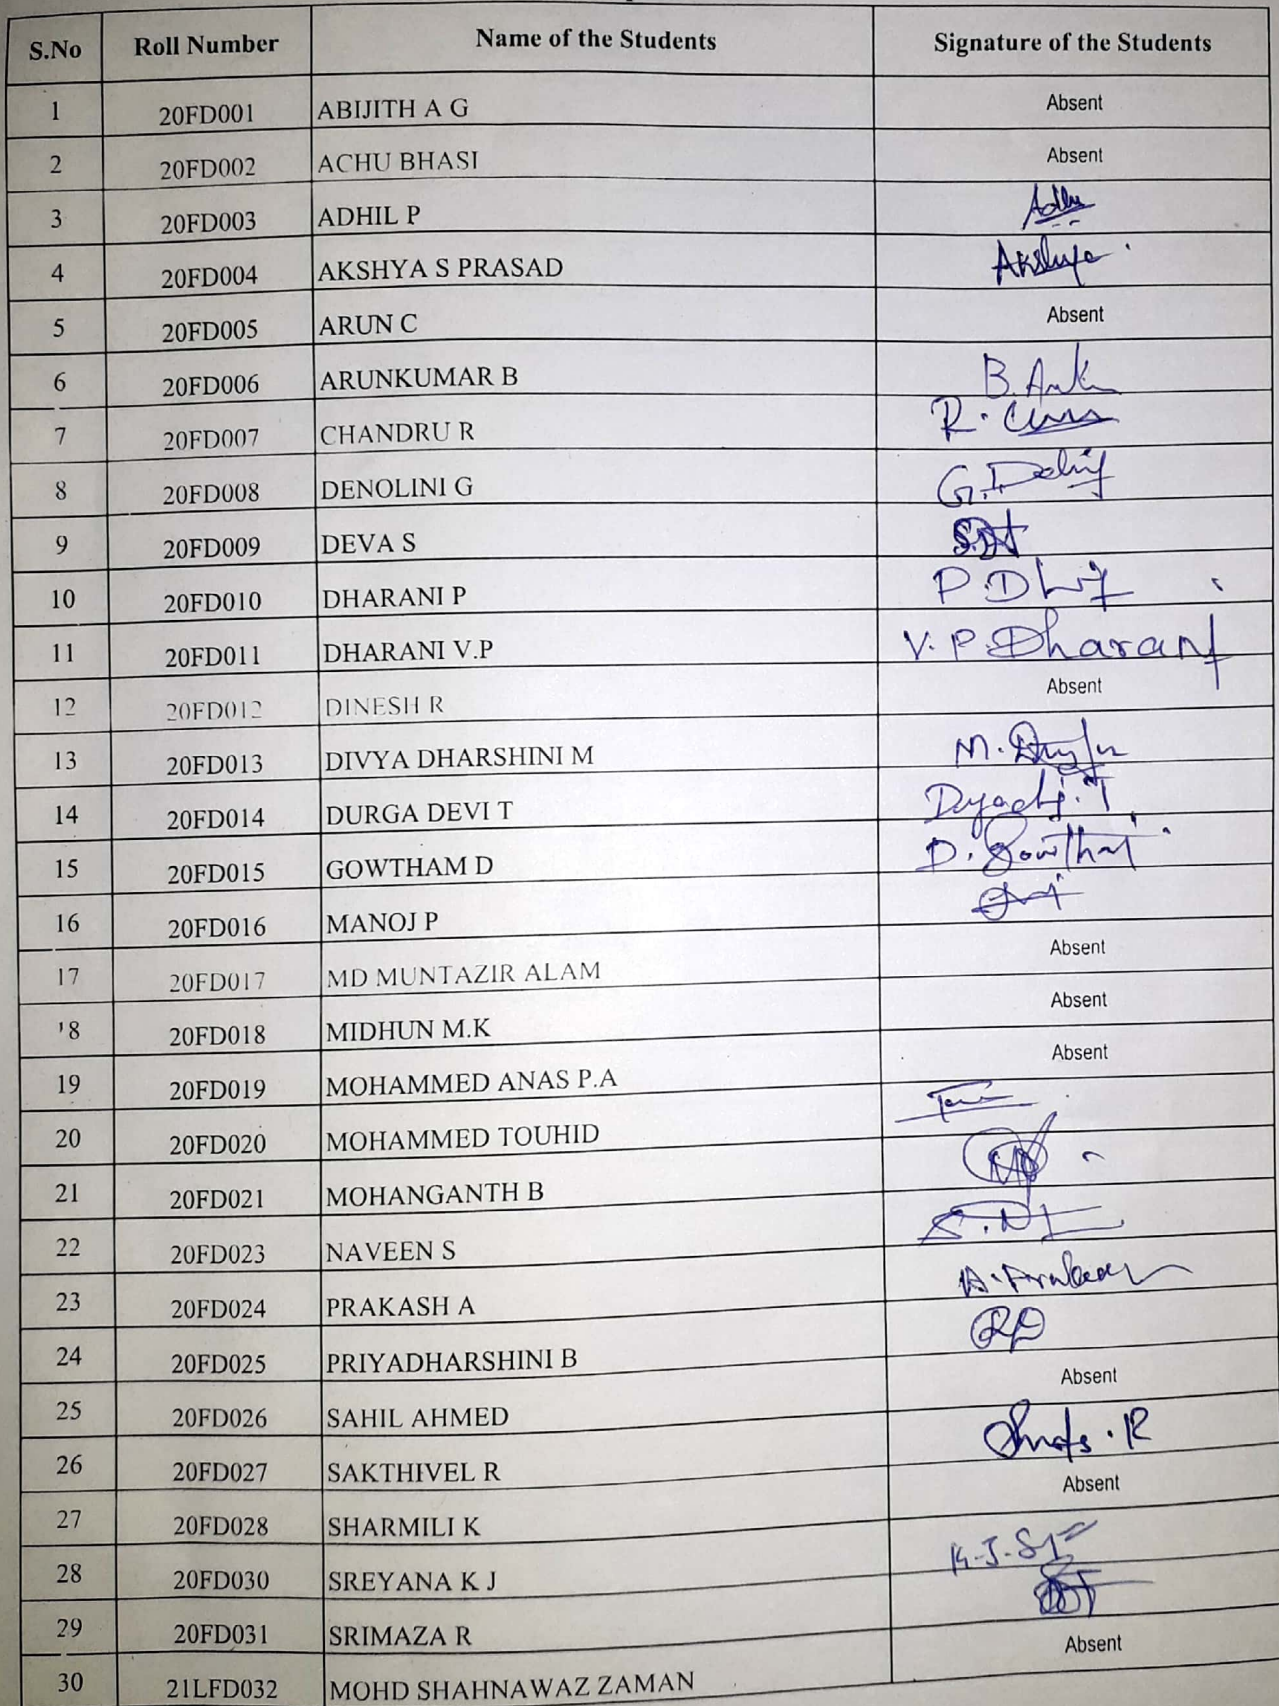 S.No Roll Number Name of the Students Signature of the Students
1 20FD001 ABIJITH A G Absent
2 20FD002 ACHU BHASI Absent
3 20FD003 ADHIL P
4 20FD004 AKSHYA S PRASAD
5 20FD005 ARUN C Absent
6 20FD006 ARUNKUMAR B
7 20FD007 CHANDRU R
8 20FD008 DENOLINI G
9 20FD009 DEVA S
10 20FD010 DHARANI P
11 20FD011 DHARANI V.P V.P.Dharani
12 20FD012 DINESH R Absent
13 20FD013 DIVYA DHARSHINI M
14 20FD014 DURGA DEVI T
15 20FD015 GOWTHAM D D.
16 20FD016 MANOJ P
17 20FD017 MD MUNTAZIR ALAM Absent
18 20FD018 MIDHUN M.K Absent
19 20FD019 MOHAMMED ANAS P.A Absent
20 20FD020 MOHAMMED TOUHID
21 20FD021 MOHANGANTH B
22 20FD023 NAVEEN S
23 20FD024 PRAKASH A
24 20FD025 PRIYADHARSHINI B
25 20FD026 SAHIL AHMED Absent
26 20FD027 SAKTHIVEL R
27 20FD028 SHARMILI K Absent
28 20FD030 SREYANA K J
29 20FD031 SRIMAZA R
30 21LFD032 MOHD SHAHNAWAZ ZAMAN Absent